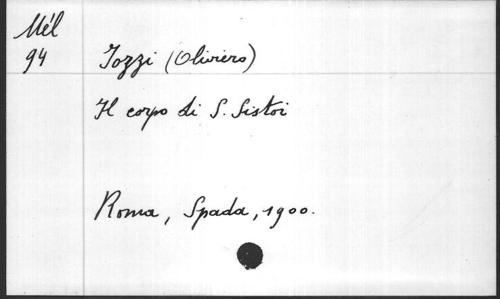 Mél
94
Iozzi (Oliviero)
Il corpo di S. Sistoi
Roma, Spada, 1900.